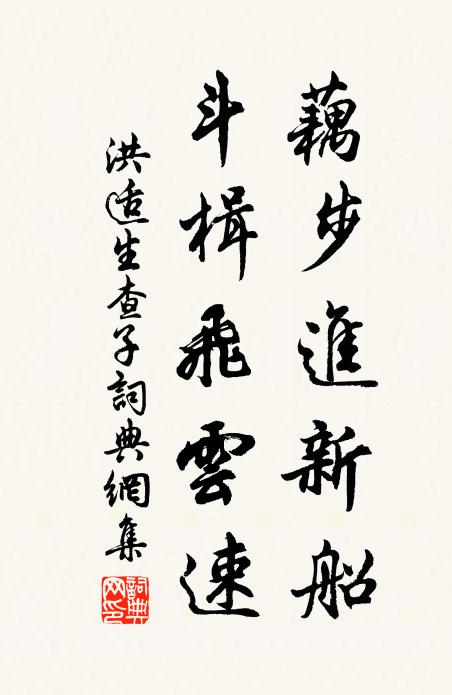 藕步進新船
斗楫飛雲速
洪适生查子詞典網集
詞典網印